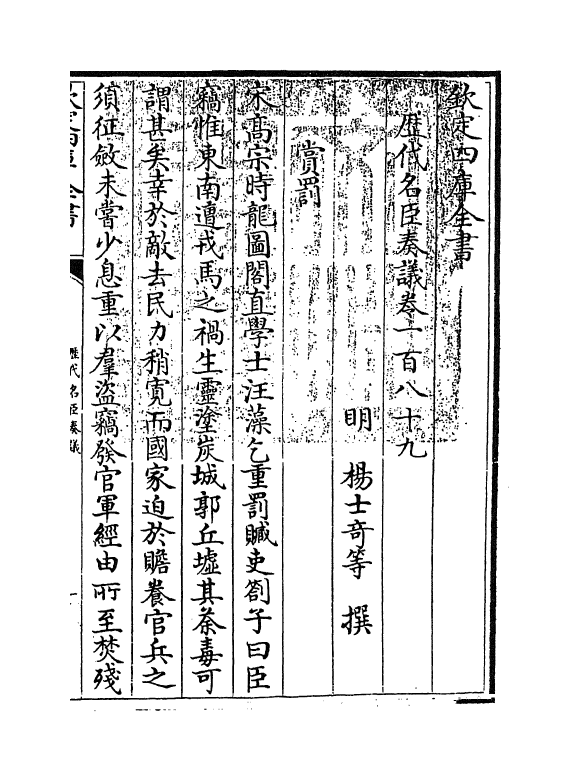 欽定四庫全書
歷代名臣奏議卷一百八十九
明　楊士竒等　撰
賞罰
宋髙宗時龍圖閣直學士汪藻乞重罰贓吏劄子曰臣
竊惟東南遭戎馬之禍生靈塗炭城郭丘墟其荼毒可
謂甚矣幸於敵去民力稍寛而國家迫於贍養官兵之
須征斂未嘗少息重以羣盜竊發官軍經由所至焚殘
欽定四庫全書
歷代名臣奏議
一